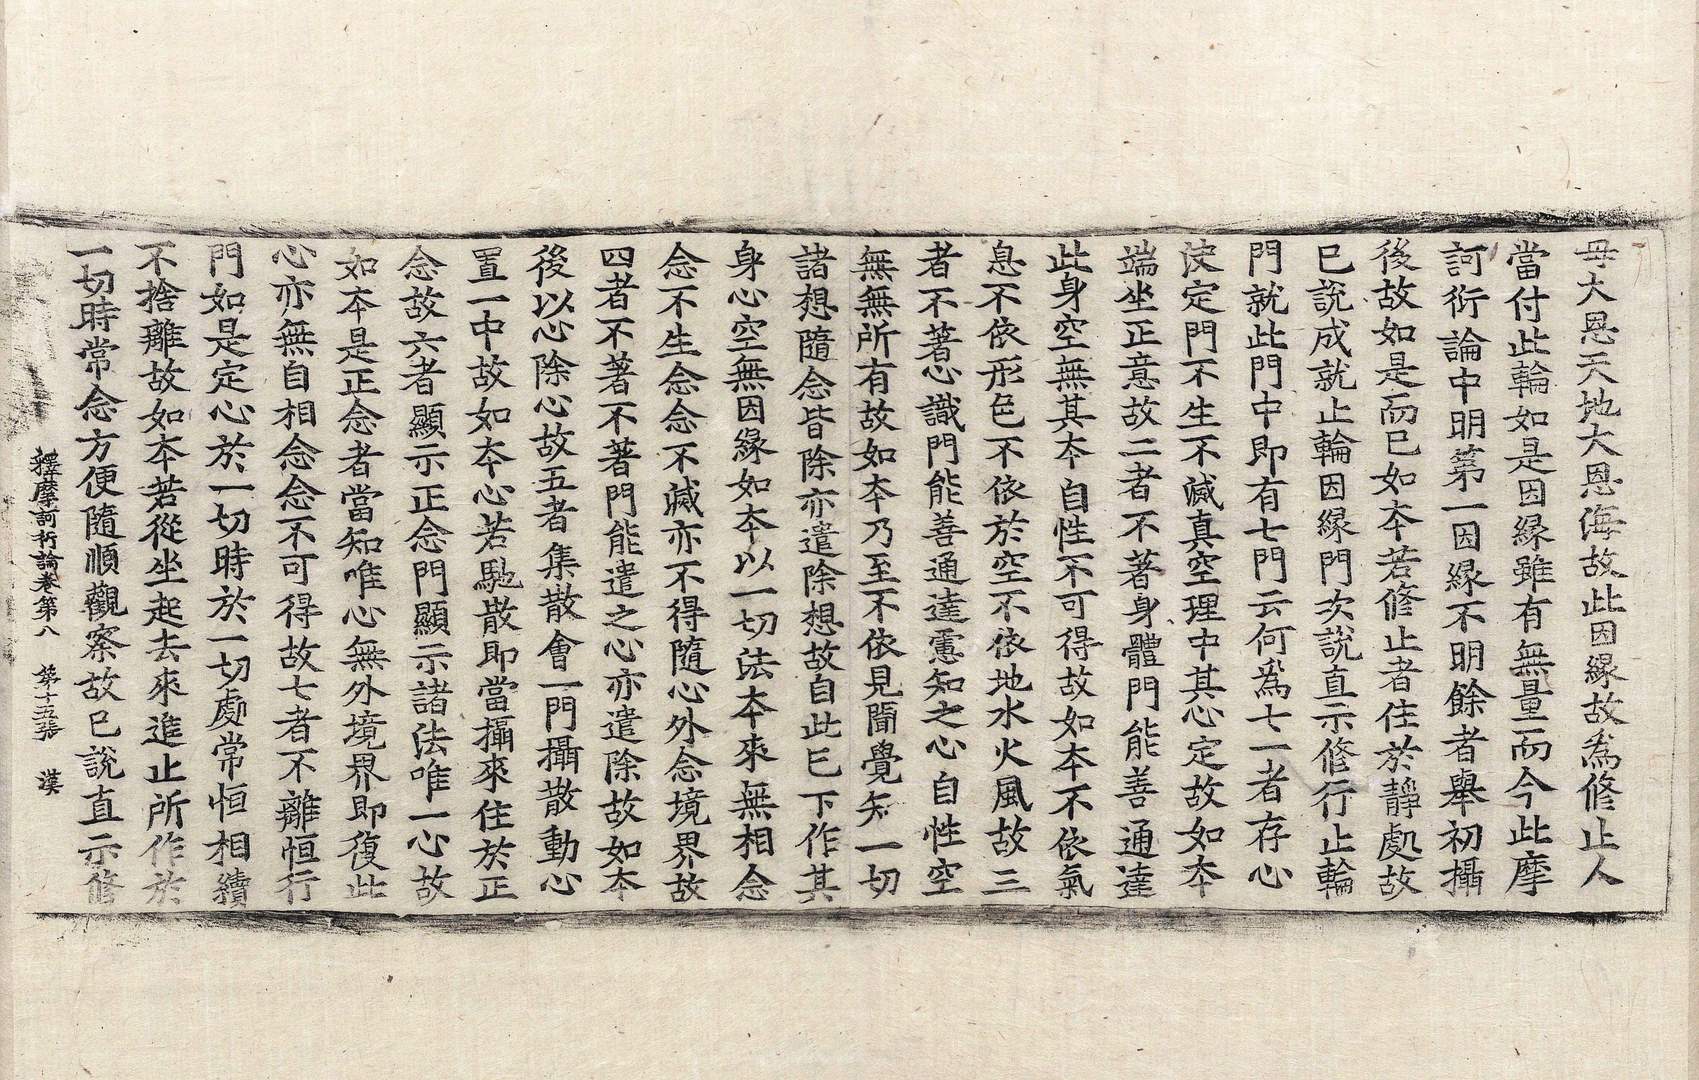 母大恩天地大恩海故此因縁故爲修止人
當付此輪如是因縁雖有無量而今此摩
訶衍論中明第一因縁不明餘者舉初攝
後故如是而已如本若修止者住於靜處故
已說成就止輪因縁門次說直示修行止輪
門就此門中即有七門云何爲七一者存心
决定門不生不滅真空理中其心定故如本
端坐正意故二者不著身體門能善通達
此身空無其本自性不可得故如本不依氣
息不依形色不依於空不依地水火風故三
者不著心識門能善通達慮知之心自性空
無無所有故如本乃至不依見聞覺知一切
諸想隨念皆除亦遣除想故自此已下作其
身心空無因縁如本以一切法本來無相念
念不生念念不滅亦不得隨心外念境界故
四者不著不著門能遣之心亦遣除故如本
後以心除心故五者集散會一門攝散動心
置一中故如本心若馳散即當攝來住於正
念故六者顯示正念門顯示諸法唯一心故
如本是正念者當知唯心無外境界即復此
心亦無自相念念不可得故七者不離恒行
門如是定心於一切時於一切處常恒相續
不捨離故如本若從坐起去來進止所作於
一切時常念方便隨順觀察故已說直示修
釋摩訶衍論卷第八 第十五張 漢